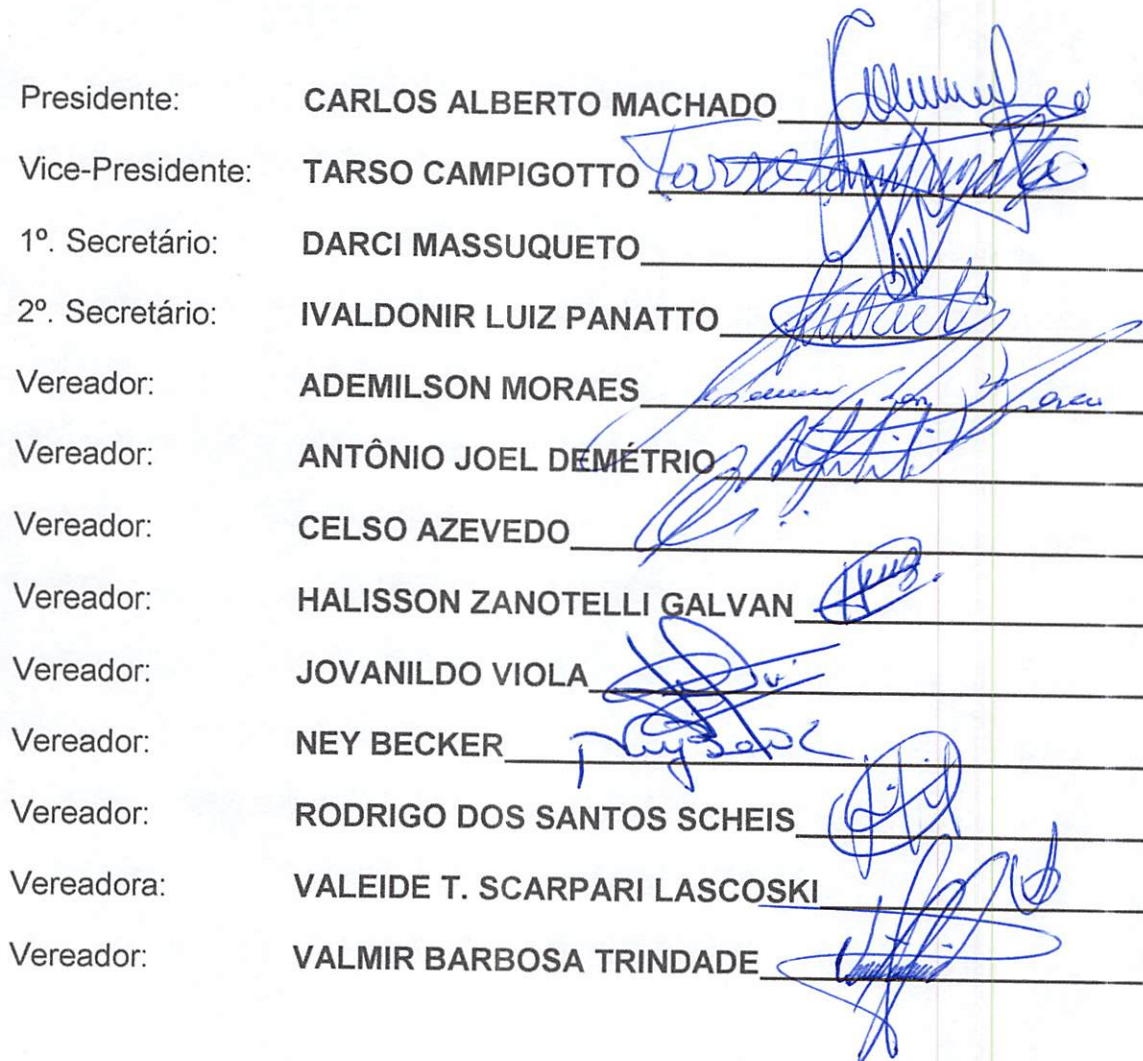 Presidente: CARLOS ALBERTO MACHADO
Vice-Presidente: TARSO CAMPIGOTTO
1º. Secretário: DARCI MASSUQUETO
2º. Secretário: IVALDONIR LUIZ PANATTO
Vereador: ADEMILSON MORAES
Vereador: ANTÔNIO JOEL DEMÉTRIO
Vereador: CELSO AZEVEDO
Vereador: HALISSON ZANOTELLI GALVAN
Vereador: JOVANILDO VIOLA
Vereador: NEY BECKER
Vereador: RODRIGO DOS SANTOS SCHEIS
Vereadora: VALEIDE T. SCARPARI LASCOSKI
Vereador: VALMIR BARBOSA TRINDADE